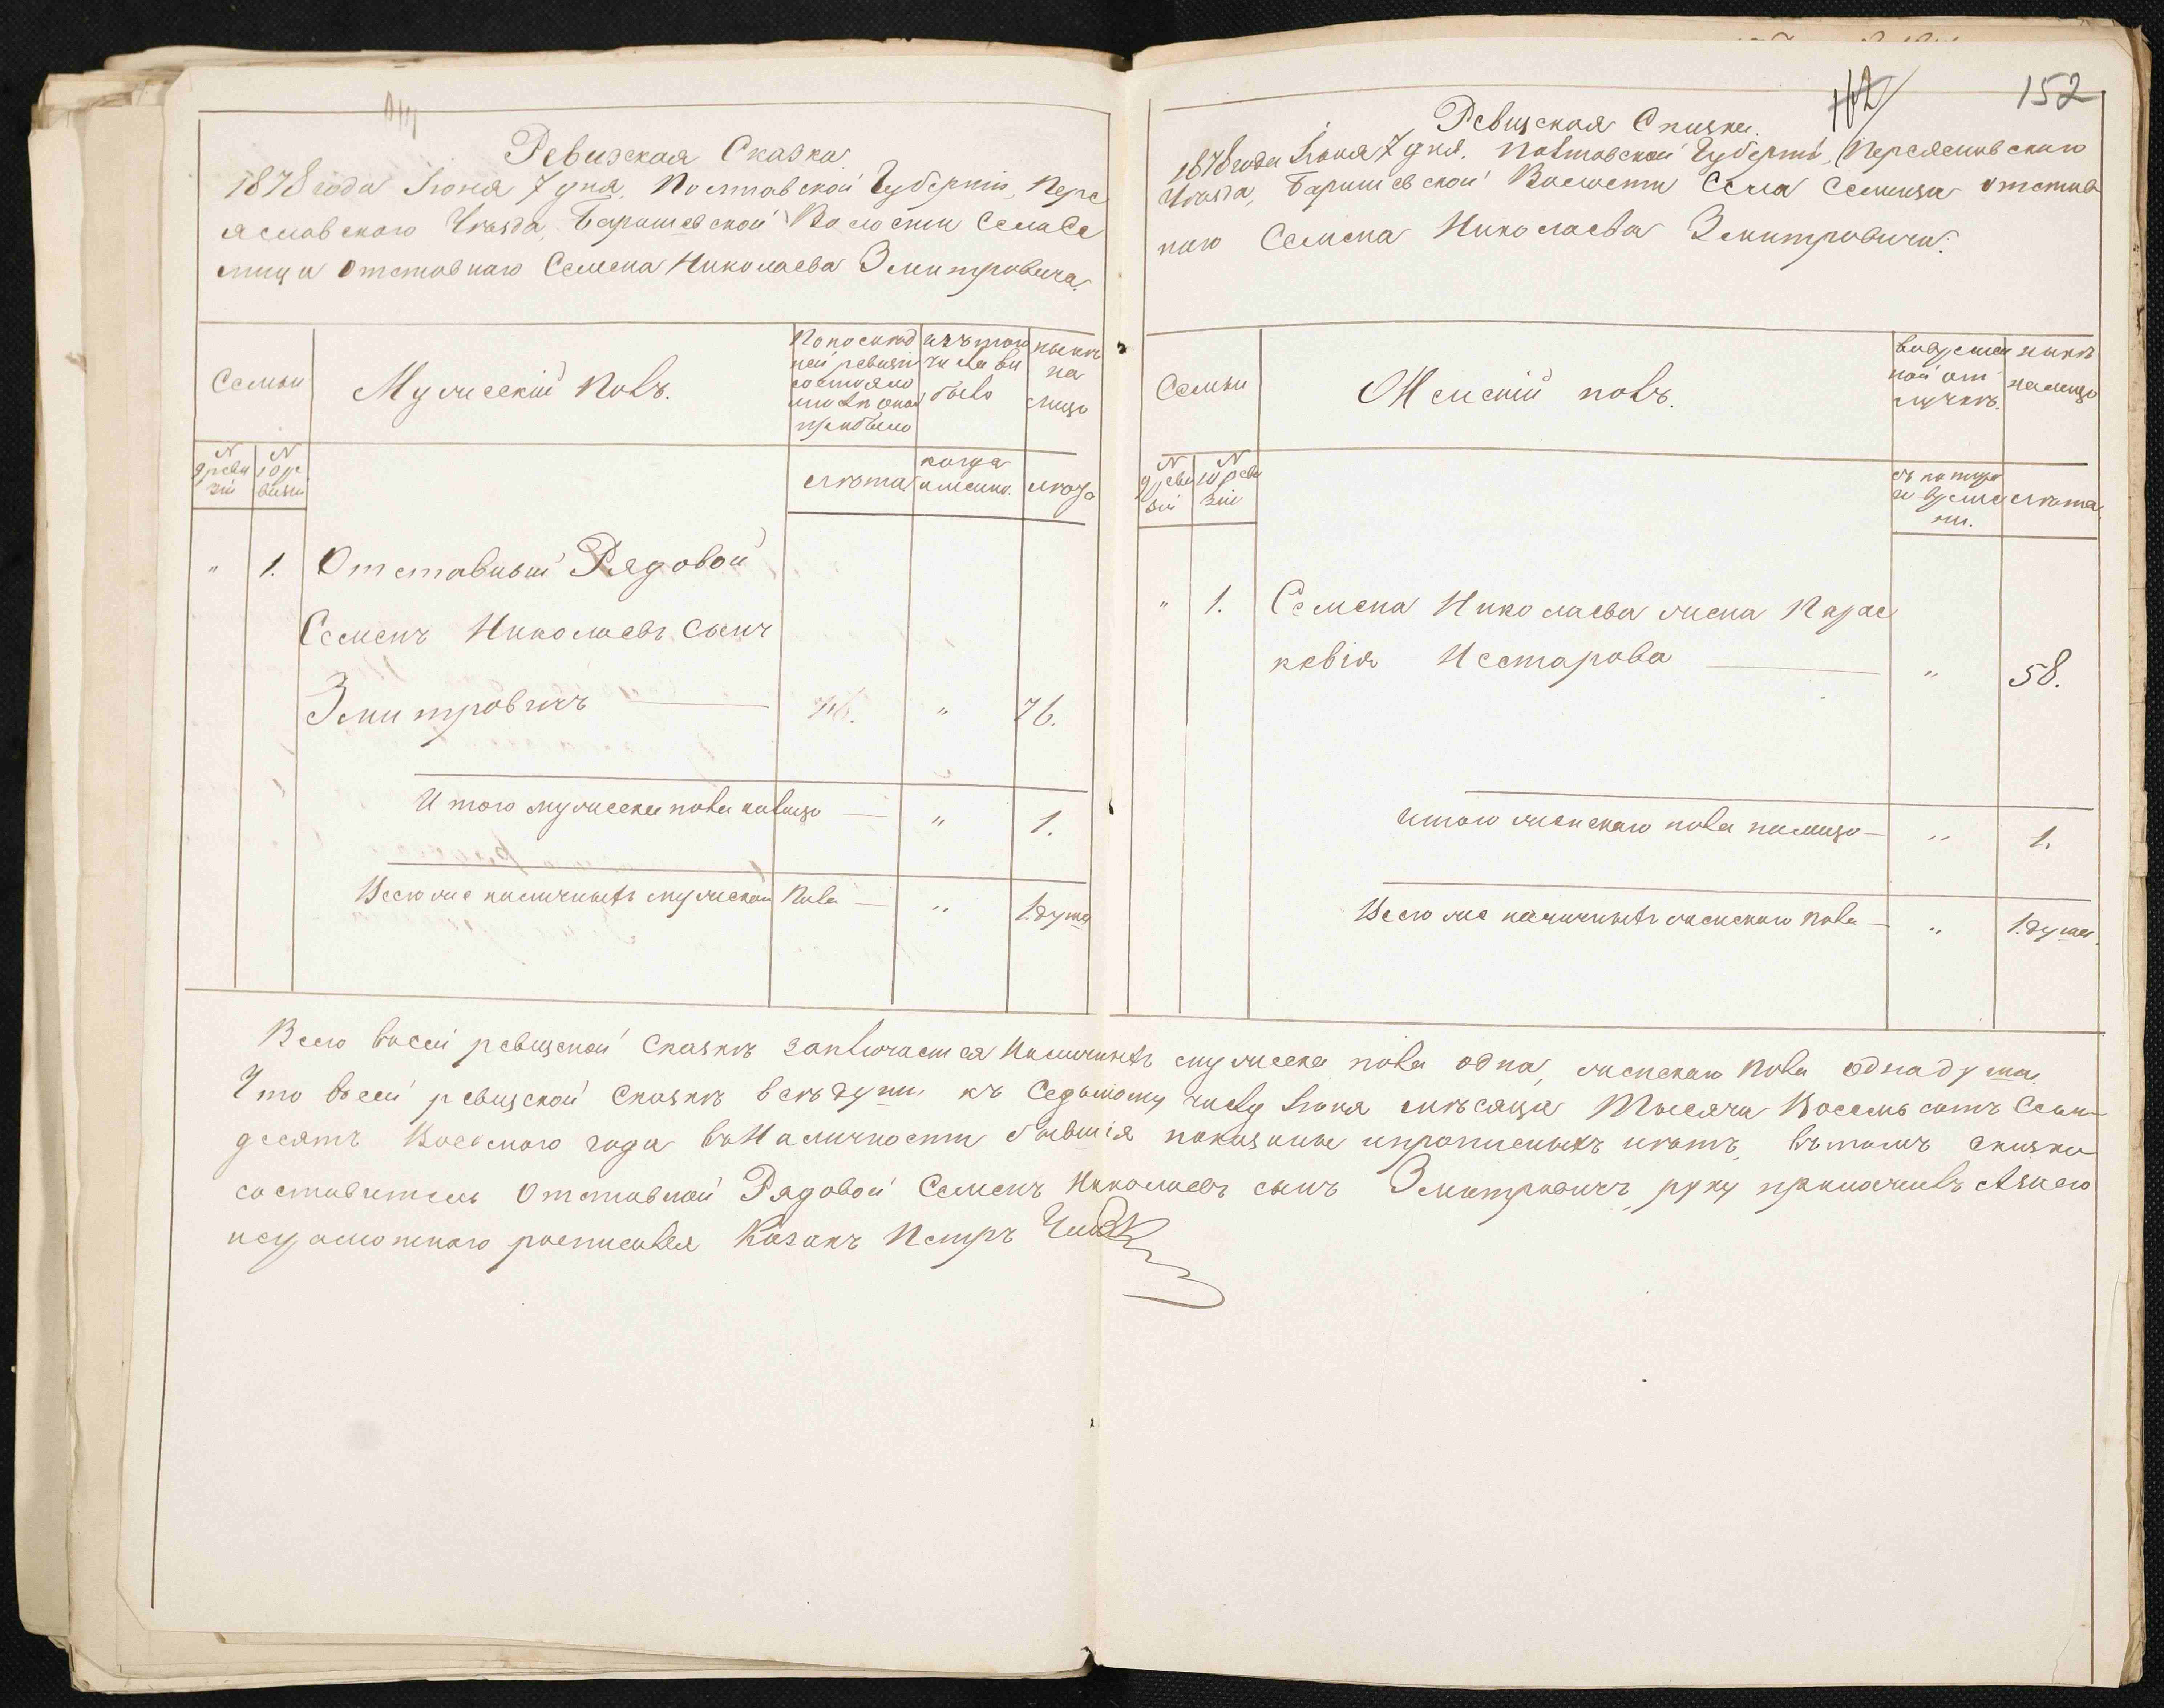 Ревизская Сказка
1878 года Іюня 7 дня, Полтавской Губерніи, Пере
яславского Уѣзда, Баришевской Волости Села Се
лища Отставнаго Семена Николаева Змитровича.
Семьи
Мужескій Полъ.
По послѣд
ней ревизіи
состояло
и послѣ оной
прибыло
изъ того
числа вы
было
нынѣ
на
лицо
N
9 реви
зіи
N
10 ре
визіи
лѣта
когда
именно.
лѣта
" 1. Отставный Рядовой
Семенъ Николаевъ Сынъ
Змитровичъ " 76.
Итого мужеска пола налицо " 1.
Всего же наличныхъ мужескаго Пола " 1. душа
152
Ревизская Сказка.
1878 года Іюня 7 дня. Полтавской Губерніи, Переяславскаго
Уѣзда, Баришевской Волости Села Селища отстав
наго Семена Николаева Змитровича.
Семьи
Женскій полъ.
во времен
ной от
лучкѣ.
нынѣ
налицо
N
9 реви
зіи
N
10 реви
зіи
съ котора
го време
ни.
лѣта.
" 1. Семена Николаева жена Парас
кевія Нестарова " 58.
Итого женскаго пола налицо " 1.
Всего же наличныхъ женскаго пола " 1. душа.
Всего въ сей ревизской Сказкѣ заключается Наличныхъ мужеска пола одна, женскаго пола одна душа.
Что въ сей ревизской Сказкѣ всѣ души къ Седьмому числу Іюня мѣсяца Тысяча Восемьсотъ Семь
десятъ Восьмого года въ Наличности бывшія показаны и прописныхъ нѣтъ, въ томъ сказки
составитель Отставной Рядовой Семенъ Николаевъ сынъ Змитровичъ, руку приложилъ А за него
неграмотнаго росписался Козакъ Петръ